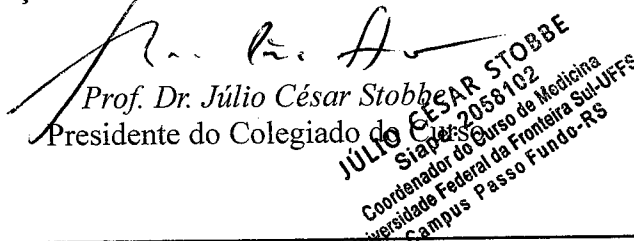 Prof. Dr. Júlio César Stobbe
Presidente do Colegiado do Curso
JÚLIO CÉSAR STOBBE
Siape: 2058102
Coordenador do Curso de Medicina
versidade Federal da Fronteira Sul-UFFS
Campus Passo Fundo-RS